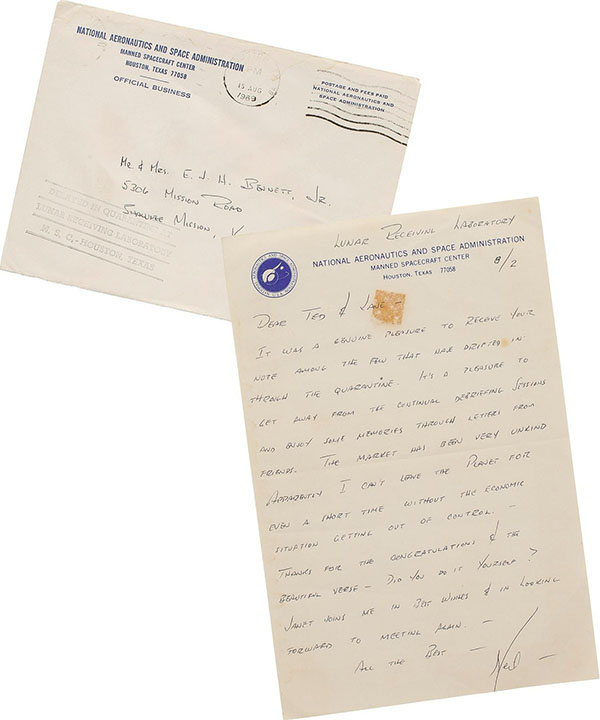 NATIONAL AERONAUTICS AND SPACE ADMINISTRATION
MANNED SPACECRAFT CENTER
HOUSTON, TEXAS 77058
OFFICIAL BUSINESS
PM
15 AUG
1969
POSTAGE AND FEES PAID
NATIONAL AERONAUTICS AND
SPACE ADMINISTRATION
Mr. & Mrs. E. J. H. BENNETT, JR.
5306 MISSION ROAD
SHAWNEE MISSION, K
IN QUARANTINE
LUNAR RECEIVING LABORATORY
M. S. C., HOUSTON, TEXAS
LUNAR RECEIVING LABORATORY
NATIONAL AERONAUTICS AND SPACE ADMINISTRATION
MANNED SPACECRAFT CENTER
HOUSTON, TEXAS 77058
8/2
DEAR TED & JANE –
IT WAS A GENUINE PLEASURE TO RECEIVE YOUR
NOTE AMONG THE FEW THAT HAVE DRIFTED IN
THROUGH THE QUARANTINE. IT'S A PLEASURE TO
GET AWAY FROM THE CONTINUAL DEBRIEFING SESSIONS
AND ENJOY SOME MEMORIES THROUGH LETTERS FROM
FRIENDS. THE MARKET HAS BEEN VERY UNKIND.
APPARENTLY I CAN'T LEAVE THE PLANET FOR
EVEN A SHORT TIME WITHOUT THE ECONOMIC
SITUATION GETTING OUT OF CONTROL. –
THANKS FOR THE CONGRATULATIONS & THE
BEAUTIFUL VERSE – DID YOU DO IT YOURSELF?
JANET JOINS ME IN BEST WISHES & IN LOOKING
FORWARD TO MEETING AGAIN. –
ALL THE BEST –
Neil –